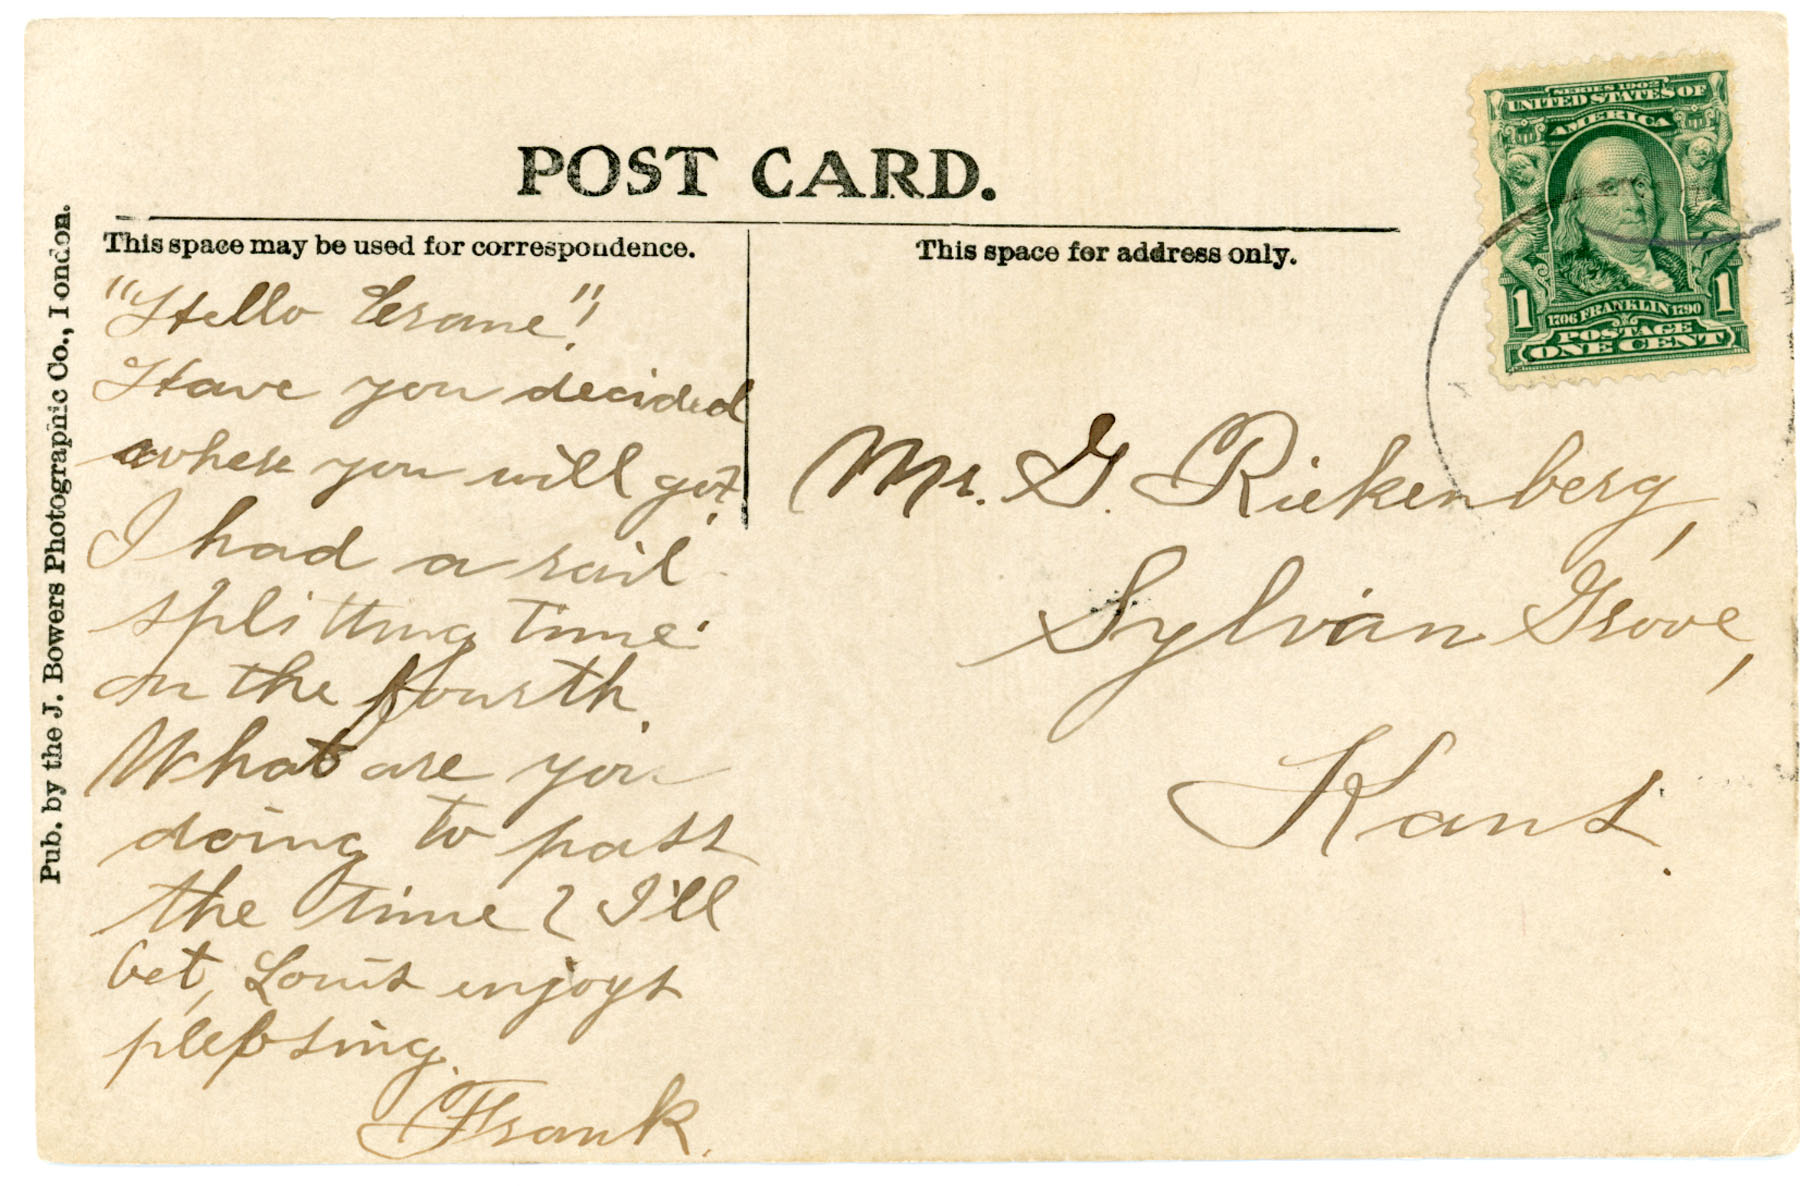 POST CARD.
This space may be used for correspondence.
This space for address only.
Pub. by the J. Bowers Photographic Co., London.
SERIES 1902
UNITED STATES OF
AMERICA
1
1706 FRANKLIN 1790
1
POSTAGE
ONE CENT
"Hello
Have you decided
where you will go?
I had a rail
splitting time
on the fourth.
What are you
doing to pass
the time? I'll
bet, Louis enjoys
Frank.
Mr. G. Riekenberg,
Sylvan Grove,
Kans.